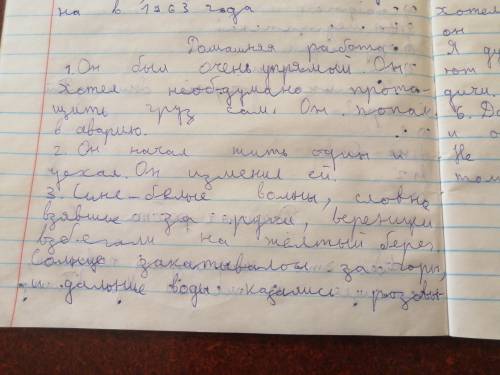 на в 1963 года
Домашняя работа
1. Он был очень упрямый Он
Хотел необдумано прота-
щить груз сам. Он попал
в аварию.
2. Он начал жить один и
уехал. Он изменил ей.
3. Сине-белые волны, словно
взявшись за руки, вереницей
взбегали на жёлтый берег.
Солнце закатывалось за горы,
и дальние воды казались розовы
хотел
он
Я ду
ют
дичи.
6. До
и о
Не
том